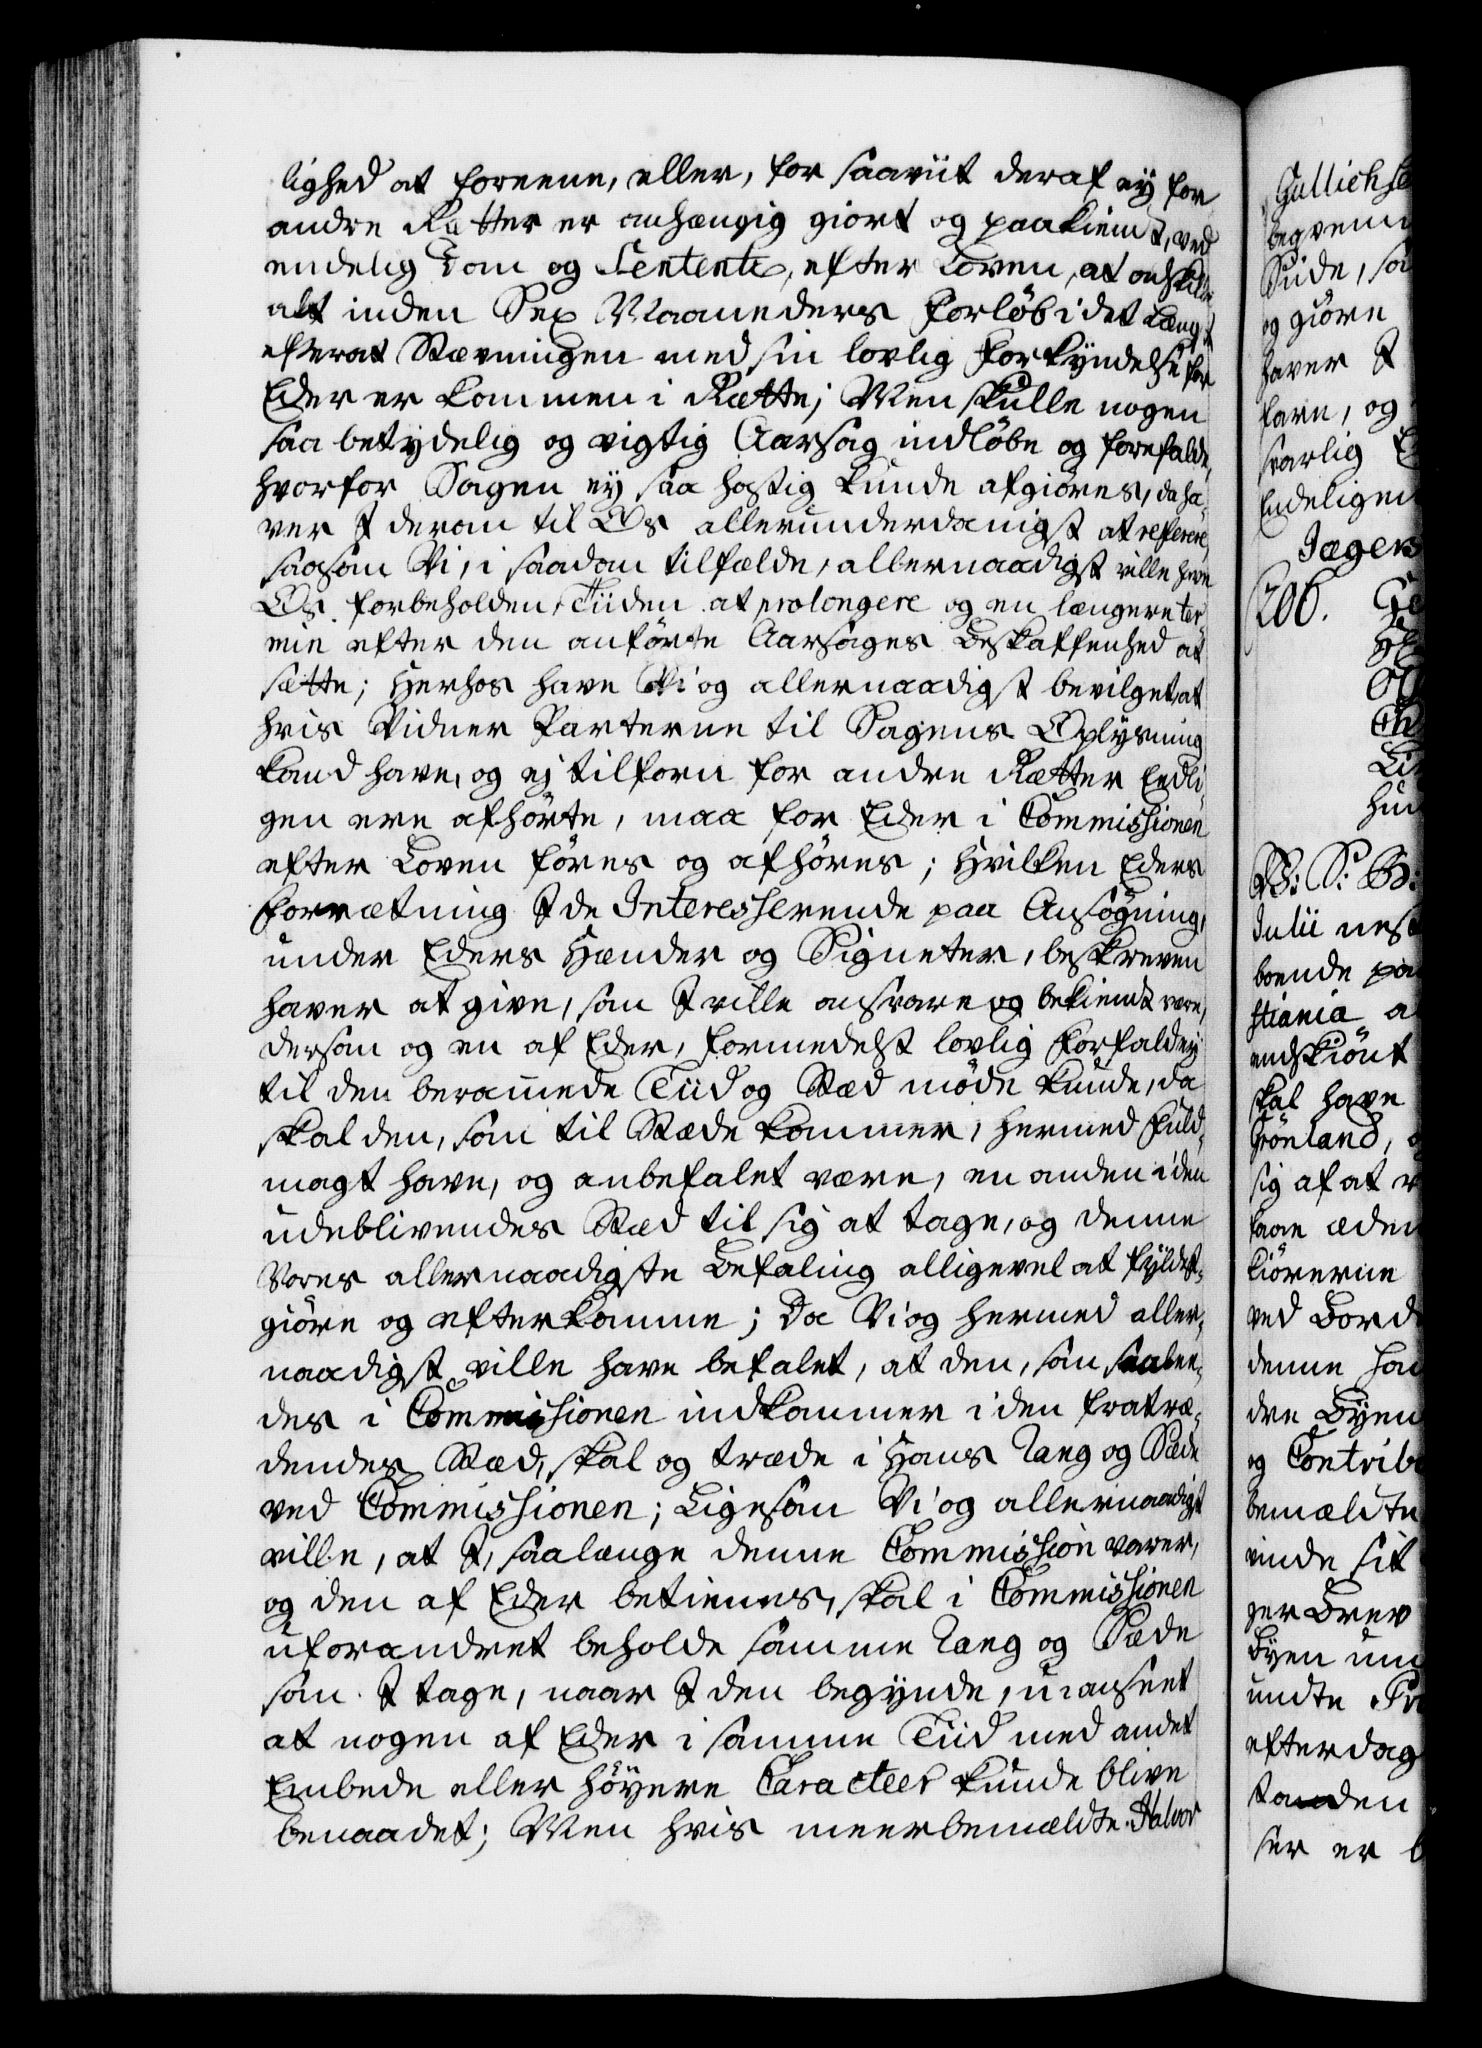 lighed at foreene, eller, for saaviit deraf ey for
andre Rætter er anhængig giort og paakiendt, ved
endelig Dom og Sententz, efter Loven, at adskille
alt inden Sex Maaneders Forløb i det længste
efterat Stævningen med sin lovlig Forkyndelse for
Eder er kommen i Rætte; Men skulle nogen
saa betydelig og vigtig Aarsag indløbe og forefalde,
hvorfor Sagen ey saa hastig kunde afgiøres, da ha-
ver I derom til Os allerunderdanigst at referere,
saasom Vi, i saadan tilfælde, allernaadigst ville have
Os forbeholden, Tiiden at prolongere og en længere ter
min efter den anførte Aarsages Beskaffenhed at
sætte; Herhos have Vi og allernaadigst bevilget, at
hvis Vidner Parterne til Sagens Oplysning
kand have, og ej tilforn for andre Rætter Eedli
gen ere afhørte, maa for Eder i Commissionen
efter Loven føres og afhøres; Hvilken Eders
Forrætning I de Interesserende paa Ansøgning,
under Eders Hænder og Signeter, beskreven
haver at give, som I ville ansvare og bekiendt være,
dersom og en af Eder, formedelst lovlig Forfald ey
til den berammede Tiid og Stæd møde kunde, da
skal den, som til Stæde kommer, hermed Fuld-
magt have, og anbefalet være, en anden i den
udeblivendes Stæd til sig at tage, og denne
Vores allernaadigste Befaling alligevel at fyldest-
giøre og efterkomme; Da Vi og hermed aller-
naadigst ville have befalet, at den, som saalee-
des i Commissionen indkommer i den fratræ-
dendes Stæd, skal og træde i Hans Rang og Sæde
ved Commissionen; Ligesom Vi og allernaadigst
ville, at I, saalænge denne Commission varer,
og den af Eder betienes, skal i Commissionen
uforandret beholde samme Rang og Sæde
som I tage, naar I den begynde, uanseet
at nogen af Eder i samme Tiid med andet
Embede eller høyere Caracteer kunde blive
benaadet; Men hvis meerbemældte Halvor
Gullichse
beqvem
Siide, saa
og giøre
haver I
fare, og
svarlig
Endeligen
Jægers
206.
P: S: G:
Julii nest
boende paa
stiania
endskiønt
skal have
Grønland,
sig af at
laae
kiørerne
ved Bord
denne
dre Byen
og Contrib
bemældte
vinde sit
ger Brev
Byen
undte
efterdag
den
ser er